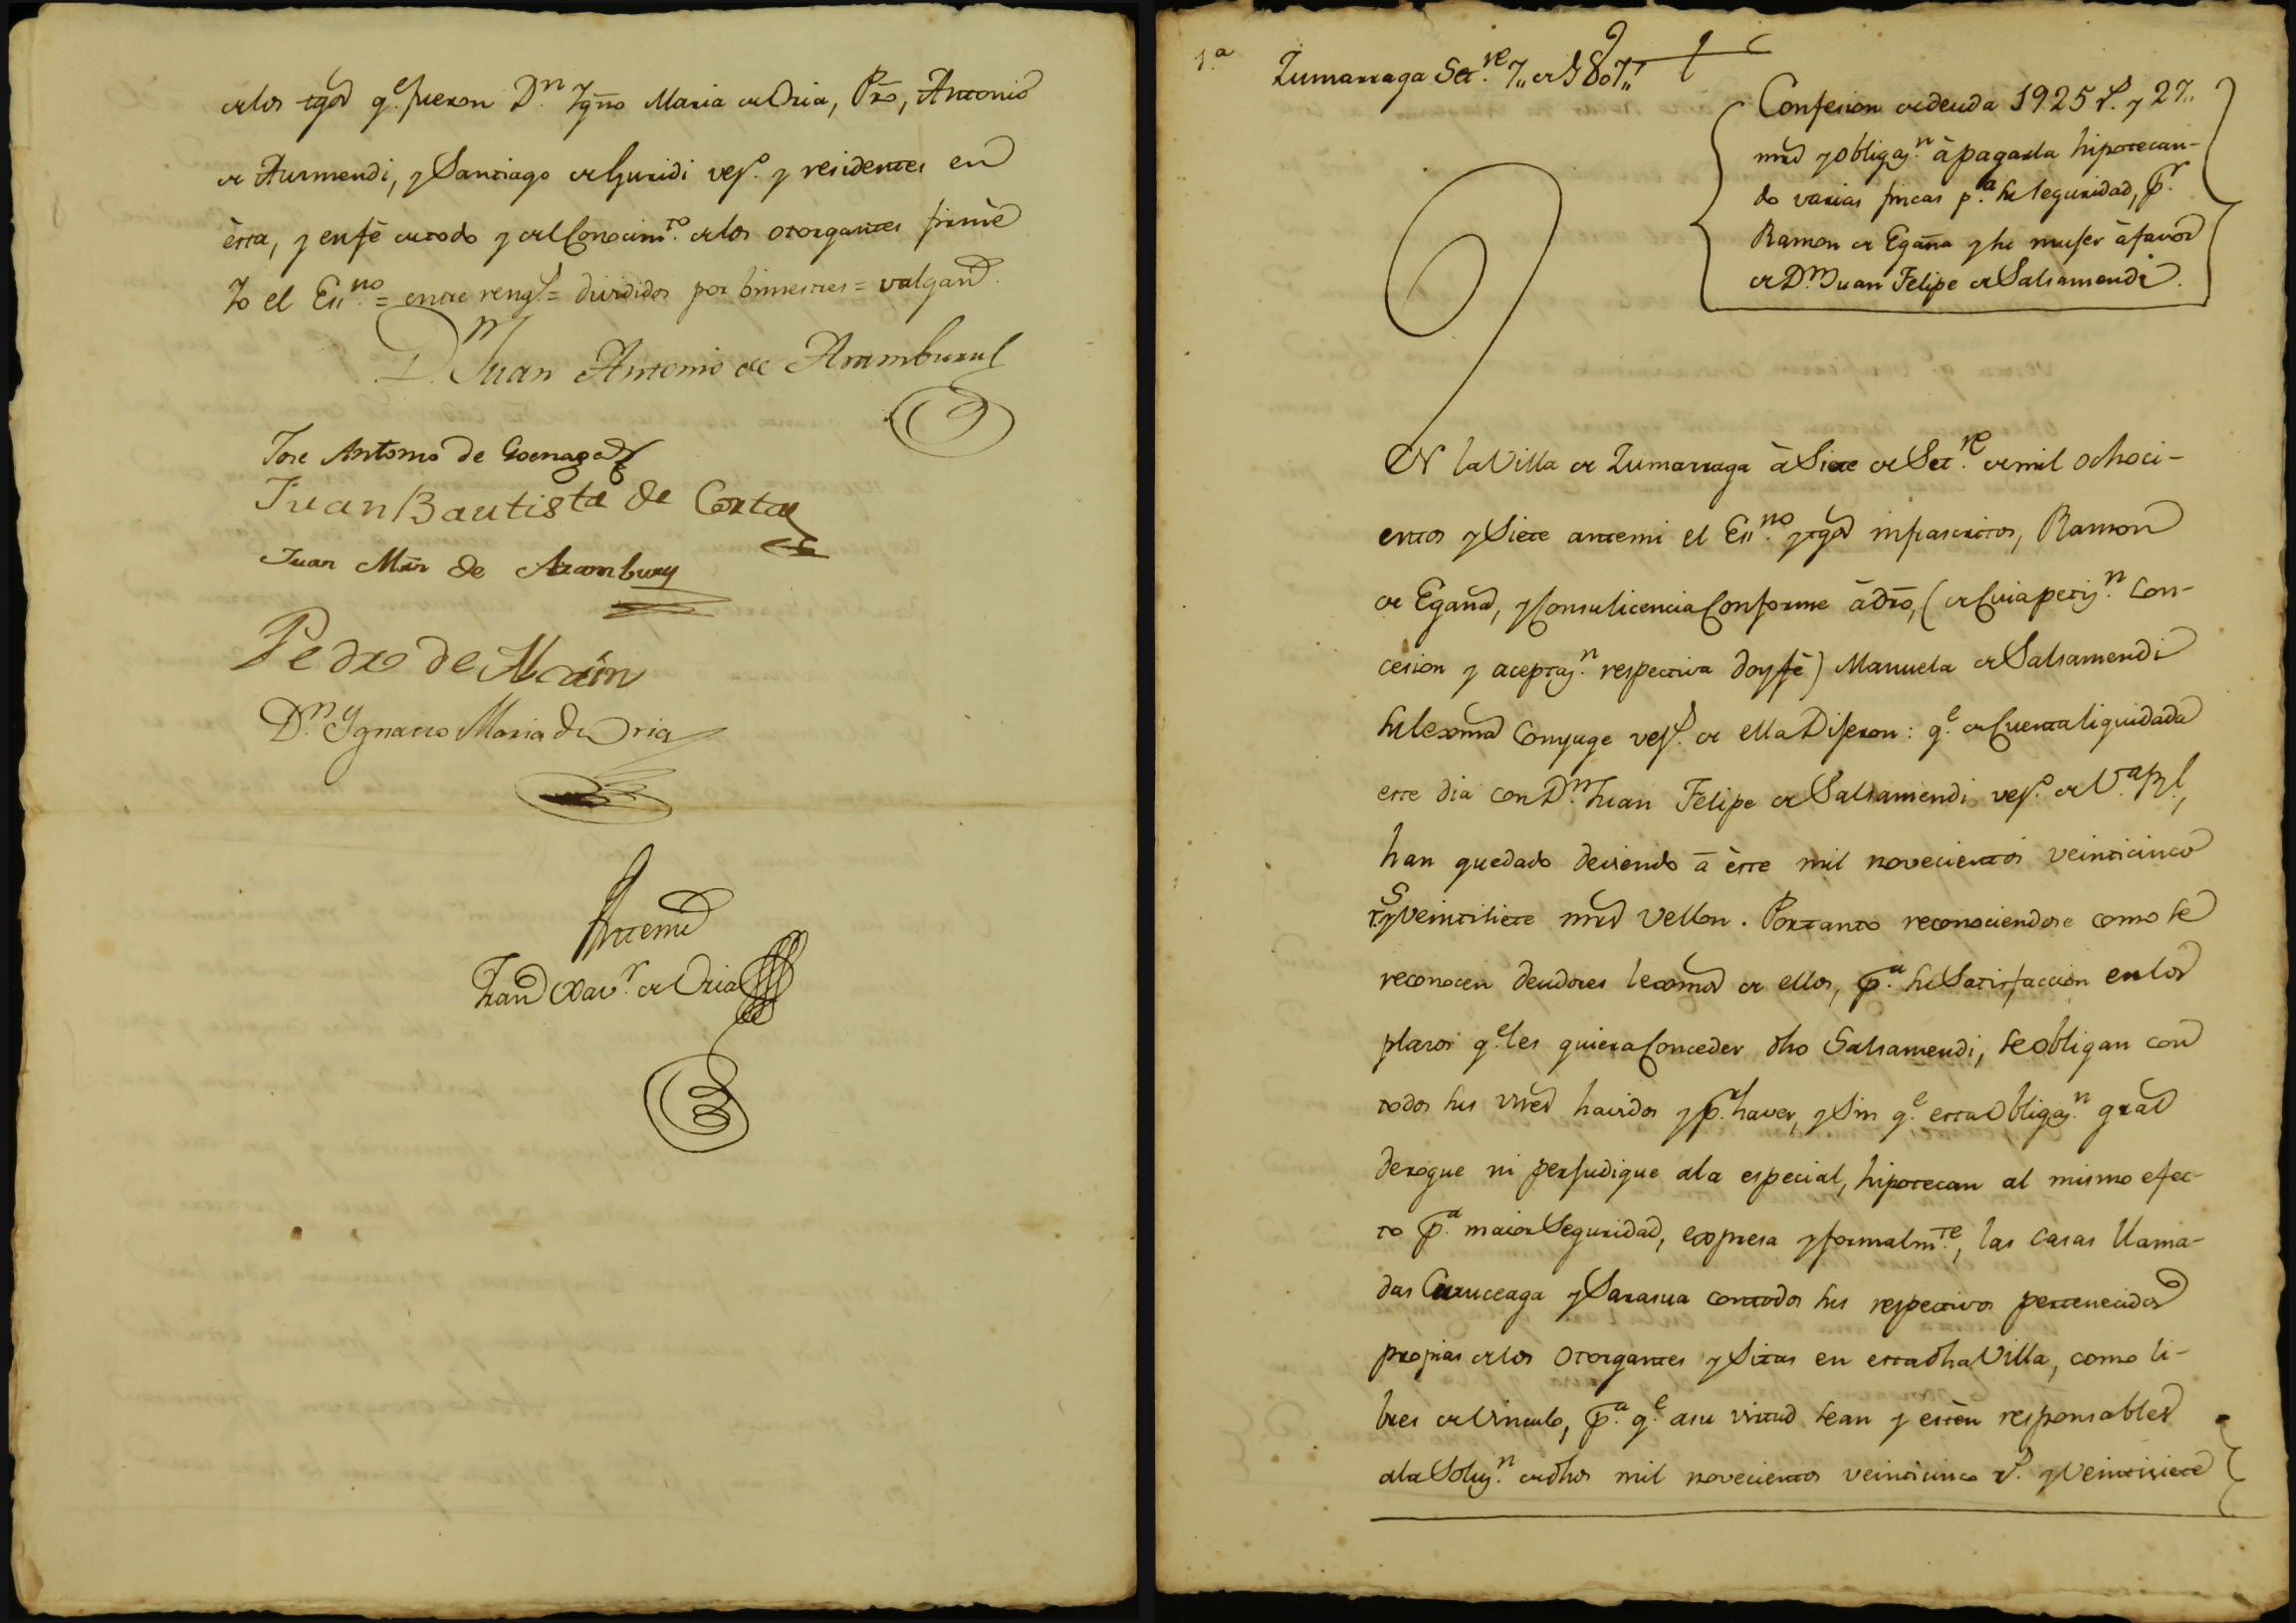 de los tgos q.e fueron D.n Ygño Maria de Oria, Pro, Antonio
de Aurmendi, y Santiago de Guridi vez.s y residentes en
èsta, y en fé de todo y del Conocim.to de los otorgantes firmè
Yo el Ess.no = entre reng.s = divididos por bimestres = valgan
D.n Juan Antonio de Aramburu
Jose Antonio de Goenaga
Juan Bautista de Corta
Juan Mrn de Aramburu
Pedro de
D.n Ygnacio Maria de Oria
Antemi
Fran.co Xav.r de Oria
1.a
Zumarraga Set.re 7,, de 1807,,
Confesion de deuda 1925 r.s y 27,,
mrs y obligaz.n à pagarla hipotecan-
do varias fincas p.a su seguridad, p.r
Ramon de Egaña y su muger à favor
de D.n Juan Felipe de Salsamendi.
EN la Villa de Zumarraga à Siete de Set.re de mil ochoci-
entos y Siete antemi el Ess.no y tgos infrascritos, Ramon
de Egaña, y Con su licencia Conforme à dro, (de Cuia petiz.n Con-
cesion y aceptaz.n respectiva doy fè) Manuela de Salsamendi
su lexma Conyuge vez.s de ella Dijeron: q.e de Cuenta liquidada
este dia con D.n Juan Felipe de Salsamendi vez.o de V.a R.l,
han quedado deviendo à èste mil novecientos veinticinco
r.s y veintisiete mrs vellon. Por tanto reconociendose como se
reconocen deudores lexmos de ellos, p.a su Satisfaccion en los
plazos q.e les quiera Conceder dho Salsamendi, se obligan con
todos sus vnes havidos y p.r haver, y Sin q.e esta Obligaz.n gral
derogue ni perjudique a la especial, hipotecan al mismo efec-
to p.a maior Seguridad, expresa y formalm.te, las Casas llama-
das Curuceaga y Sarasua con todos sus respectivos pertenecidos
propias de los Otorgantes y Sitas en esta dha Villa, como li-
bres de Vinculo, p.a q.e a su virtud sean y estèn responsables
a la Soluz.n de dhos mil novecientos veinticinco r.s y Veintisiete